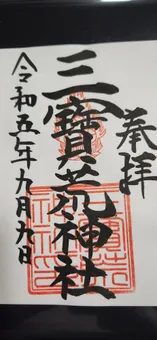 奉拝
三寶荒神社
令和五年九月九日